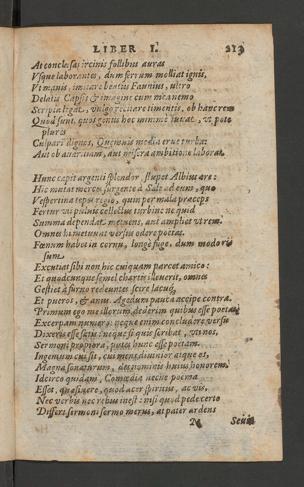 LIBER I. 213
At conclusas hircinis follibus auras
Vsque laborantes, dum ferrum molliat ignis,
Vt mauis, imitare beatus Fannius, vltro
Delatis Capsis & imagine cum mea nemo
Scripta legat, vulgo recitare timentis, ob hanc rem
Quòd sunt quos genus hoc minimè iuuat, vt pote
plures
Culpari dignos, Quemuis media erue turba:
Aut ob auaritiam, aut misera ambitione laborat.
Hunc capit argenti splendor, stupet Albius ære:
Hic mutat merces surgente à Sole ad eum, quo
Vespertina tepet regio, quin per mala præceps
Fertur vti puluis collectus turbine ne quid
Summa deperdat metuens, aut ampliet vt rem.
Omnes hi metuunt versus odere poëtas.
Fœnum habet in cornu, longè fuge, dum modo ri
sum
Excutiat sibi non hic cuiquam parcet amico:
Et quodcunque semel chartis illeuerit, omnes
Gestiet à furno redeuntes scire lacuq́,
Et pueros, & anus. Agedum pauca accipe contra.
Primum ego me illorum, dederim quibus esse poetas
Excerpam numero: neque enim concludere versū
Dixeris esse satis: neque si quis scribat, vti nos,
Sermoni propiora, putes hunc esse poetam.
Ingenium cui sit, cui mens diuinior atque os,
Magna sonaturum, des nominis huius honorem.
Idcirco quidam, Comœdia necne poema
Esset, quæsiuere, quod acer spiritus, ac vis,
Nec verbis nec rebus inest: nisi quòd pede certo
Differt sermoni sermo merus, at pater ardens
Sæuit